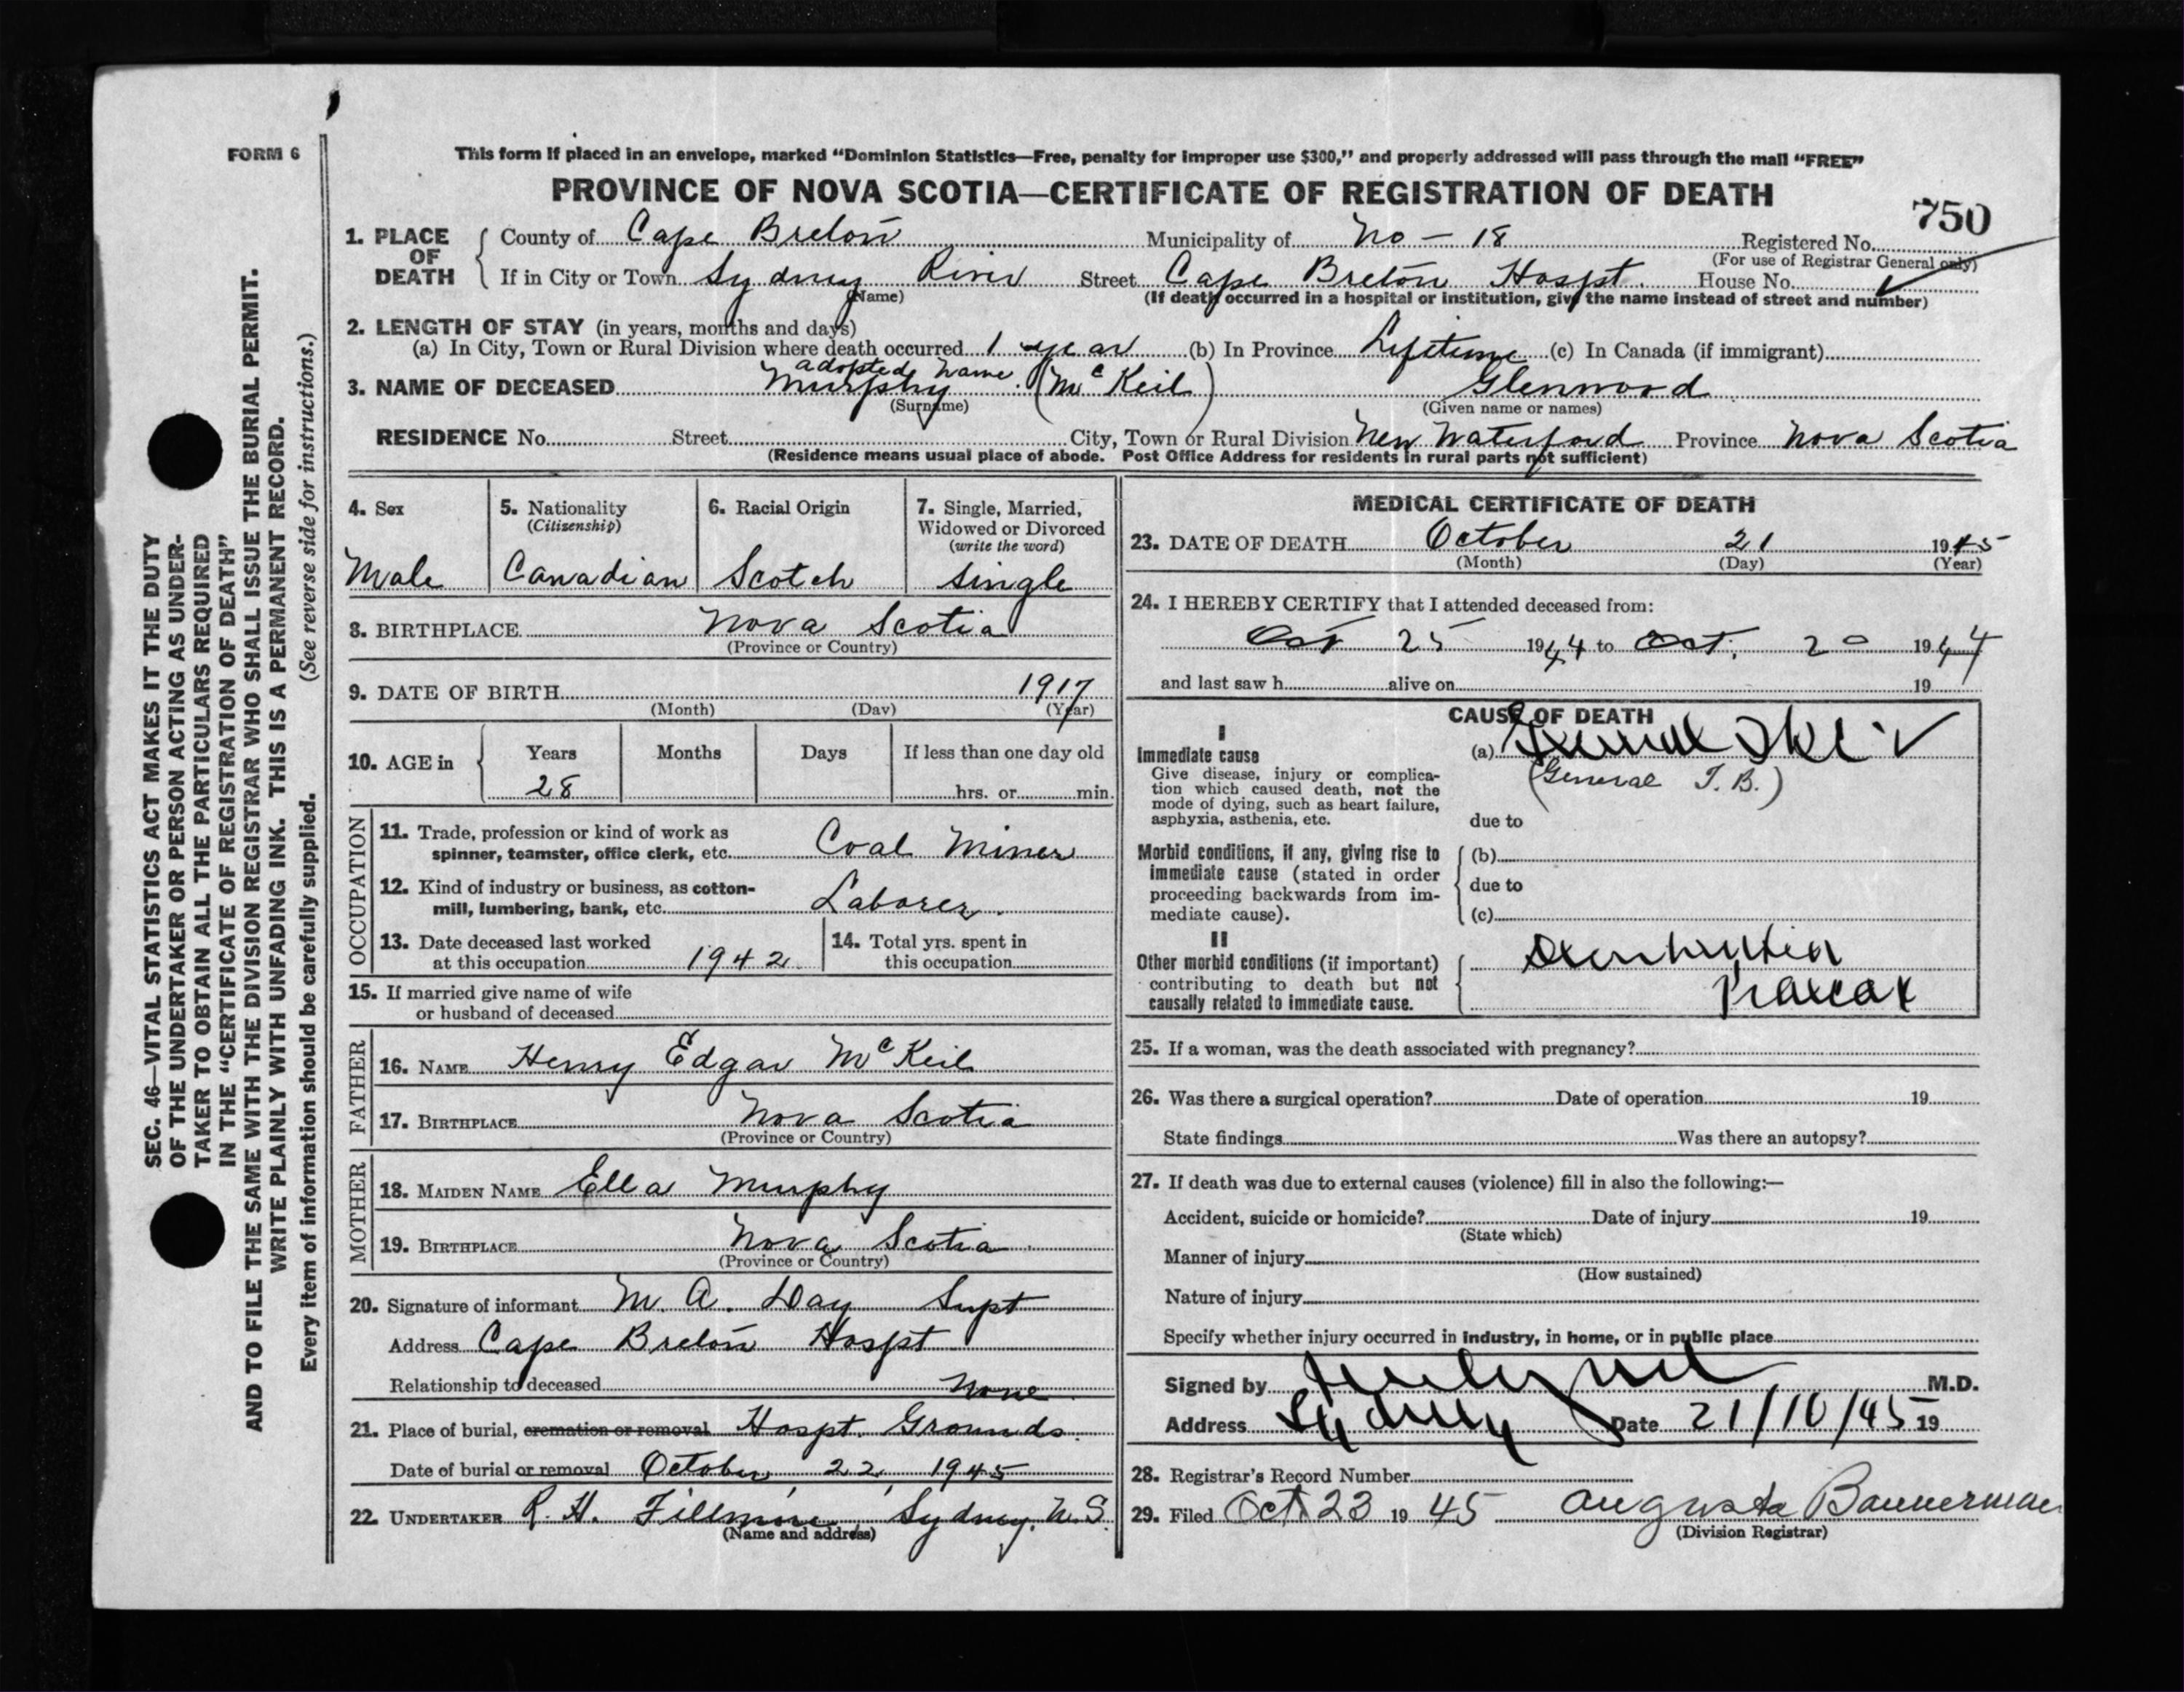 FORM 6
This form if placed in an envelope, marked “Dominion Statistics—Free, penalty for improper use $300,” and properly addressed will pass through the mail “FREE”
PROVINCE OF NOVA SCOTIA—CERTIFICATE OF REGISTRATION OF DEATH
750
1. PLACE OF DEATH
County of Cape Breton Municipality of No - 18 Registered No.
(For use of Registrar General only)
If in City or Town Sydney River Street Cape Breton Hospt. House No.
(Name) (If death occurred in a hospital or institution, give the name instead of street and number)
2. LENGTH OF STAY (in years, months and days)
(a) In City, Town or Rural Division where death occurred 1 year (b) In Province Lifetime (c) In Canada (if immigrant)
adopted name
3. NAME OF DECEASED Murphy (McKeil) Glenwood
(Surname) (Given name or names)
RESIDENCE No. Street City, Town or Rural Division New Waterford Province Nova Scotia
(Residence means usual place of abode. Post Office Address for residents in rural parts not sufficient)
4. Sex
Male
5. Nationality
(Citizenship)
Canadian
6. Racial Origin
Scotch
7. Single, Married,
Widowed or Divorced
(write the word)
Single
8. BIRTHPLACE Nova Scotia
(Province or Country)
9. DATE OF BIRTH 1917
(Month) (Day) (Year)
10. AGE in Years Months Days If less than one day old
28 hrs. or min.
OCCUPATION
11. Trade, profession or kind of work as
spinner, teamster, office clerk, etc. Coal Miner
12. Kind of industry or business, as cotton-
mill, lumbering, bank, etc. Laborer.
13. Date deceased last worked
at this occupation 1942
14. Total yrs. spent in
this occupation
15. If married give name of wife
or husband of deceased
FATHER
16. NAME Henry Edgar McKeil
17. BIRTHPLACE Nova Scotia
(Province or Country)
MOTHER
18. MAIDEN NAME Ella Murphy
19. BIRTHPLACE Nova Scotia
(Province or Country)
20. Signature of informant M. A. Day Supt
Address Cape Breton Hospt
Relationship to deceased None
21. Place of burial, cremation or removal Hospt. Grounds.
Date of burial or removal October 22, 1945
22. UNDERTAKER R. H. Fillmore, Sydney, N.S.
(Name and address)
MEDICAL CERTIFICATE OF DEATH
23. DATE OF DEATH October 21 1945
(Month) (Day) (Year)
24. I HEREBY CERTIFY that I attended deceased from:
Oct 25 1944 to Oct. 20 1944
and last saw h alive on 19
CAUSE OF DEATH
I
Immediate cause
Give disease, injury or complica-
tion which caused death, not the
mode of dying, such as heart failure,
asphyxia, asthenia, etc.
(a) General
(General T. B.)
due to
Morbid conditions, if any, giving rise to
immediate cause (stated in order
proceeding backwards from im-
mediate cause).
(b)
due to
(c)
II
Other morbid conditions (if important)
contributing to death but not
causally related to immediate cause.
25. If a woman, was the death associated with pregnancy?
26. Was there a surgical operation? Date of operation 19
State findings Was there an autopsy?
27. If death was due to external causes (violence) fill in also the following:—
Accident, suicide or homicide? Date of injury 19
(State which)
Manner of injury
(How sustained)
Nature of injury
Specify whether injury occurred in industry, in home, or in public place
Signed by M.D.
Address Sydney Date 21/10/45 19
28. Registrar's Record Number
29. Filed Oct 23 19 45 Augusta Bannerman
(Division Registrar)
SEC. 46—VITAL STATISTICS ACT MAKES IT THE DUTY
OF THE UNDERTAKER OR PERSON ACTING AS UNDER-
TAKER TO OBTAIN ALL THE PARTICULARS REQUIRED
IN THE “CERTIFICATE OF REGISTRATION OF DEATH”
AND TO FILE THE SAME WITH THE DIVISION REGISTRAR WHO SHALL ISSUE THE BURIAL PERMIT.
WRITE PLAINLY WITH UNFADING INK. THIS IS A PERMANENT RECORD.
Every item of information should be carefully supplied. (See reverse side for instructions.)